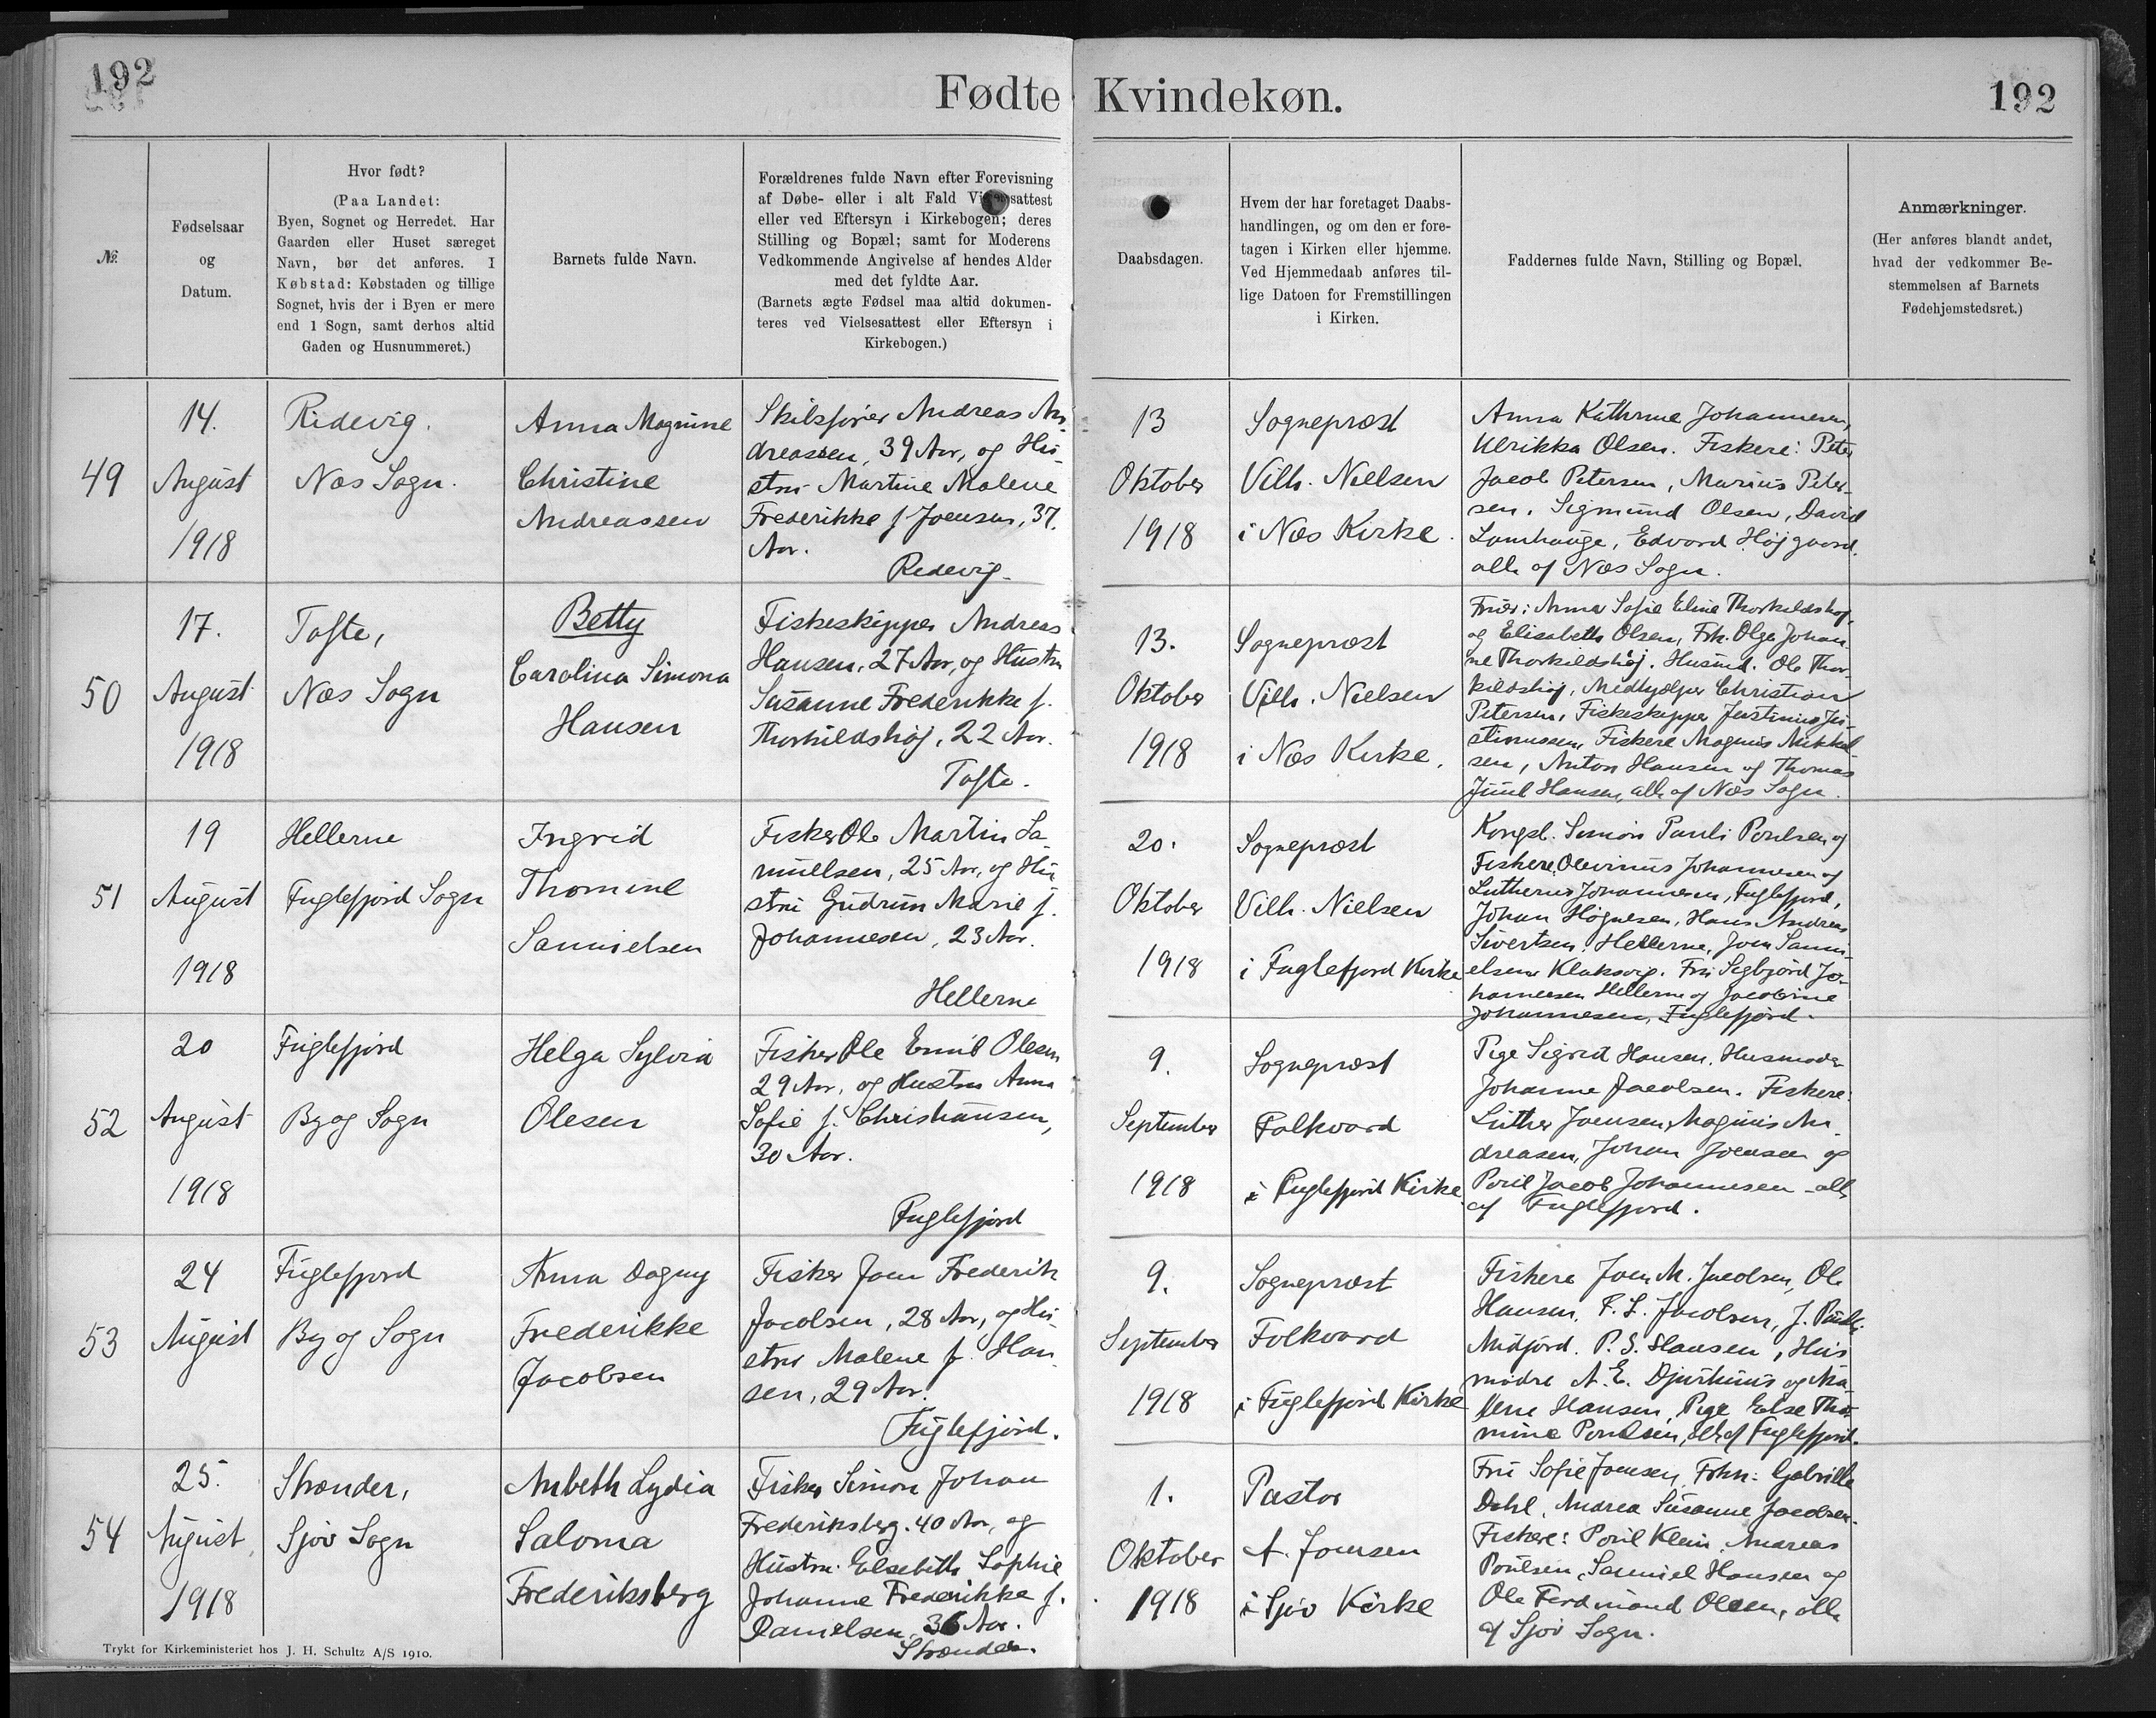 192
Fødte Kvindekøn.
192
№
Fødselsaar
og
Datum.
Hvor født?
(Paa Landet:
Byen, Sognet og Herredet. Har
Gaarden eller Huset særeget
Navn, bør det anføres. I
Købstad: Købstaden og tillige
Sognet, hvis der i Byen er mere
end 1 Sogn, samt derhos altid
Gaden og Husnummeret.)
Barnets fulde Navn.
Forældrenes fulde Navn efter Forevisning
af Døbe- eller i alt Fald Vielsesattest
eller ved Eftersyn i Kirkebogen; deres
Stilling og Bopæl; samt for Moderens
Vedkommende Angivelse af hendes Alder
med det fyldte Aar.
(Barnets ægte Fødsel maa altid dokumen-
teres ved Vielsesattest eller Eftersyn i
Kirkebogen.)
Daabsdagen.
Hvem der har foretaget Daabs-
handlingen, og om den er fore-
tagen i Kirken eller hjemme.
Ved Hjemmedaab anføres til-
lige Datoen for Fremstillingen
i Kirken.
Faddernes fulde Navn, Stilling og Bopæl.
Anmærkninger.
(Her anføres blandt andet,
hvad der vedkommer Be-
stemmelsen af Barnets
Fødehjemstedsret.)
49
14.
August
1918
Ridevig.
Næs Sogn.
Anna Magnine
Christine
Andreassen
Skibsfører Andreas An-
dreassen, 39 Aar, og Hu-
stru Martine Malene
Frederikke f. Joensen, 37.
Aar.
Ridevig.
13
Oktober
1918
Sognepræst
Vilh. Nielsen
i Næs Kirke.
Anna Kathrine Johannesen,
Ulrikka Olsen. Fiskere: Peter
Jacob Petersen, Marius Peter-
sen, Sigmund Olsen, David
Lamhauge, Edvard Højgaard.
alle af Næs Sogn.
50
17.
August
1918
Tofte,
Næs Sogn
Betty
Carolina Simona
Hansen
Fiskeskipper Andreas
Hansen, 27 Aar, og Hustru
Susanne Frederikke f.
Thorkildshøj, 22 Aar.
Tofte.
13.
Oktober
1918
Sognepræst
Vilh. Nielsen
i Næs Kirke.
Fruer: Anna Sofie Eline Thorkildshøj,
og Elisabeth Olsen, Frk. Olga Johan-
ne Thorkildshøj. Husmd. Ole Thor-
kildshøj, Medhjælper Christian
Petersen, Fiskeskipper Justinus Ju-
stinussen, Fiskere Magnus Mikkel-
sen, Anton Hansen og Thomas
Juul Hansen, alle af Næs Sogn.
51
19
August
1918
Hellerne
Fuglefjord Sogn
Ingrid
Thomine
Samuelsen
Fisker Ole Martin Sa-
muelsen, 25 Aar, og Hu-
stru Gudrun Marie f.
Johannesen, 23 Aar.
Hellerne
20.
Oktober
1918
Sognepræst
Vilh. Nielsen
i Fuglefjord Kirke
Kongsb. Simon Pauli Poulsen og
Fiskere Olevinus Johannesen og
Lutherus Johannesen, Fuglefjord,
Johan Høgnesen, Hans Andreas
Sivertsen, Hellerne, Joen Samu-
elsen Klaksvig. Fru Sigbjørd Jo-
hannesen Hellerne og Jacobine
Johannesen, Fuglefjord.
52
20
August
1918
Fuglefjord
By og Sogn
Helga Sylvia
Olesen
Fisker Ole Emil Olesen
29 Aar, og Hustru Anna
Sofie f. Christiansen,
30 Aar.
Fuglefjord
9.
September
1918
Sognepræst
Falkvard
i Fuglefjord Kirke.
Pige Sigrid Hansen. Husmoder
Johanne Jacobsen. Fiskere:
Luther Joensen, Magnus An-
dreasen, Johan Joensen og
Poul Jacob Johannesen - alle
af Fuglefjord.
53
24
August
1918
Fuglefjord
By og Sogn
Anna Dagny
Frederikke
Jacobsen
Fisker Joen Frederik
Jacobsen, 28 Aar, og Hu-
stru Malene f. Han-
sen, 29 Aar.
Fuglefjord.
9.
September
1918
Sognepræst
Folkvard
i Fuglefjord Kirke
Fiskere Joen M. Jacobsen, Ole
Hansen, F. L. Jacobsen, J. Pauli
Midjord. P. S. Hansen, Hus
mødre A. E. Djurhuus og Ma-
lene Hansen, Pige Else Tho-
mine Poulsen, alle af Fuglefjord.
54
25.
August
1918
Strænder,
Sjov Sogn
Anbeth Lydia
Saloma
Frederiksberg
Fisker Simon Johan
Frederiksberg. 40 Aar, og
Hustru: Elsebeth Sophie
Johanne Frederikke f.
Danielsen, 36 Aar.
Strænder.
1.
Oktober
1918
Pastor
A. Joensen
i Sjov Kirke
Fru Sofie Joensen, Frkn: Gabrielle
Dahl, Andrea Susanne Jacobsen.
Fiskere: Poul Klein, Andreas
Poulsen, Samuel Hansen og
Ole Ferdinand Olsen, alle
af Sjov Sogn.
Trykt for Kirkeministeriet hos J. H. Schultz A/S 1910.